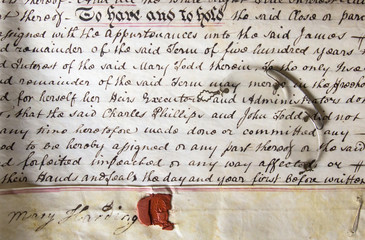 thereof And all the
t thereof To have and to hold the said Close or parc
signed with the Appurtenances unto the said James
d remainder of the said Term of five hundred years
d Interest of the said Mary Todd therein To the only Use
nd remainder of the said Term may merge in the Freeho
d for herself her Heirs Executors and Administrators do
, that the said Charles Phillips and John Todd did not
any time heretofore made done or committed any
ed to be hereby assigned or any part thereof or the said
d forfeited impeached or any way affected or
their Hands and Seals the day and year first before written
Mary Harding